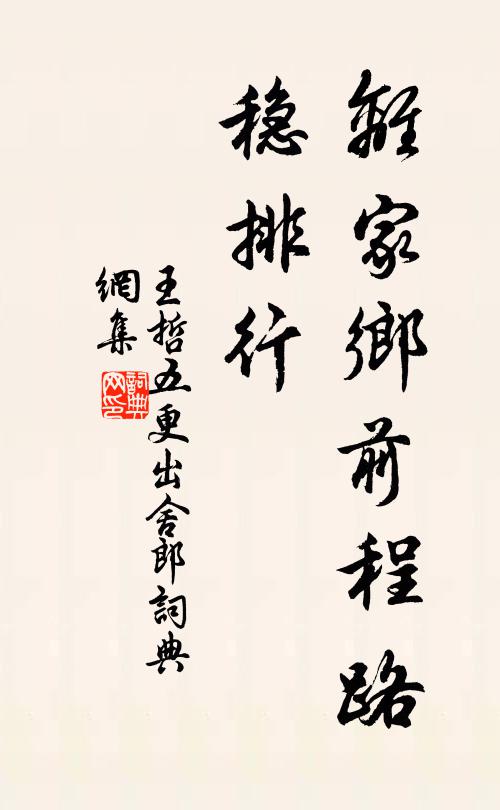 離家鄉前程路
穩排行
王哲五更出舍郎詞典
網集
詞典
网印